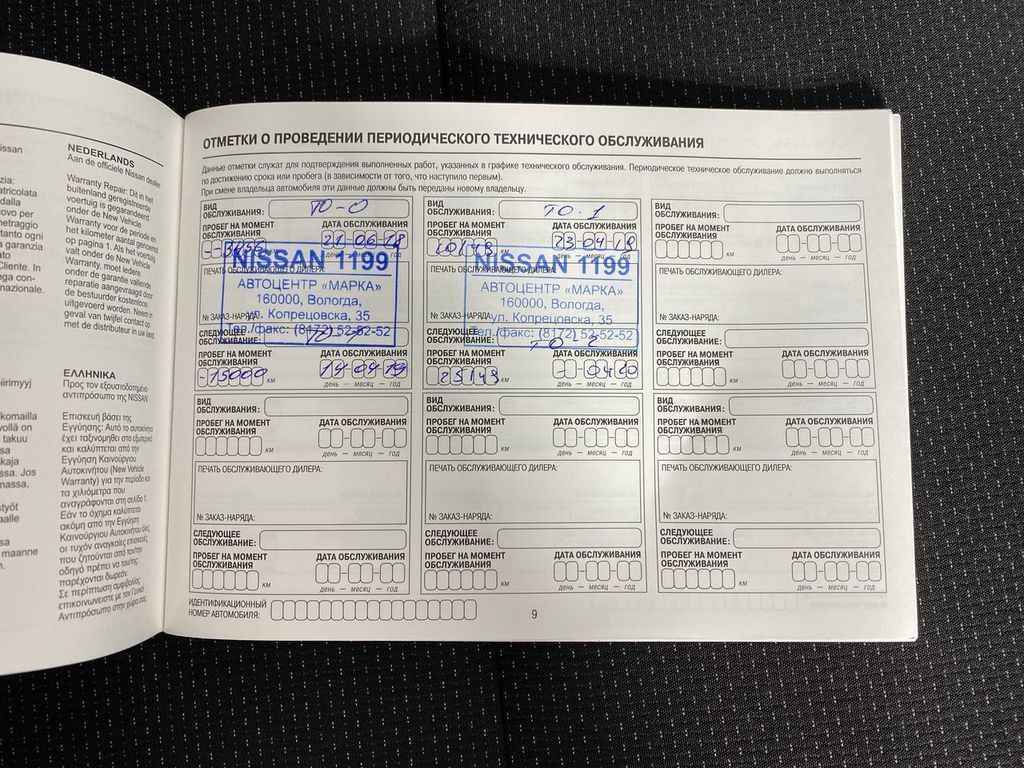 issan
zia:
atricolata
dalla
ovo per
metraggio
tanto ogni
a garanzia
ato
Cliente. In
ega con-
nazionale.
NEDERLANDS
Aan de officiële Nissan dealer
Warranty Repair: Dit in het
buitenland geregistreerde
voertuig is gegarandeerd
onder de New Vehicle
Warranty voor de periode en
het kilometer aantal genoemd
op pagina 1. Als het voertuig
valt onder de New Vehicle
Warranty, moet ieders
onder de garantie vallende
reparatie aangevraagd door
de bestuurder kosteloos
uitgevoerd worden. Neem in
geval van twijfel contact op
met de distributeur in uw land.
iirimyyj
komailla
vollä on
takuu
kaja
ssa. Jos
massa,
styöt
aalle
ssa
maanne
ΕΛΛΗΝΙΚΑ
Προς τον εξουσιοδοτημένο
αντιπρόσωπο της NISSAN
Επισκευή βάσει της
Εγγύησης: Αυτό το αυτοκίνητο
έχει ταξινομηθεί στο εξωτερικό
και καλύπτεται από την
Εγγύηση Καινούργιου
Αυτοκινήτου (New Vehicle
Warranty) για την περίοδο και
τα χιλιόμετρα που
αναγράφονται στη σελίδα 1.
Εάν το όχημα καλύπτεται
ακόμη από την Εγγύηση
Καινούργιου Αυτοκινήτου όλες
οι τυχόν αναγκαίες επισκευές
που ζητούνται από τον/την
οδηγό πρέπει να του/της
παρέχονται δωρεάν.
Σε περίπτωση αμφιβολίας
επικοινωνείστε με τον Γενικό
Αντιπρόσωπο στην χώρα σας.
ОТМЕТКИ О ПРОВЕДЕНИИ ПЕРИОДИЧЕСКОГО ТЕХНИЧЕСКОГО ОБСЛУЖИВАНИЯ
Данные отметки служат для подтверждения выполненных работ, указанных в графике технического обслуживания. Периодическое техническое обслуживание должно выполняться
по достижению срока или пробега (в зависимости от того, что наступило первым).
При смене владельца автомобиля эти данные должны быть переданы новому владельцу.
ВИД
ОБСЛУЖИВАНИЯ: ТО-0
ПРОБЕГ НА МОМЕНТ ДАТА ОБСЛУЖИВАНИЯ
ОБСЛУЖИВАНИЯ
21 06 18
ПЕЧАТЬ ОБСЛУЖИВАЮЩЕГО ДИЛЕРА
NISSAN 1199
АВТОЦЕНТР «МАРКА»
160000, Вологда,
ул. Копрецовска, 35
Тел./факс: (8172) 52-52-52
№ ЗАКАЗ-НАРЯДА:
СЛЕДУЮЩЕЕ
ОБСЛУЖИВАНИЕ: ТО-1
ПРОБЕГ НА МОМЕНТ ДАТА ОБСЛУЖИВАНИЯ
ОБСЛУЖИВАНИЯ
15000 14 04 19
день — месяц — год
ВИД
ОБСЛУЖИВАНИЯ: ТО-1
ПРОБЕГ НА МОМЕНТ ДАТА ОБСЛУЖИВАНИЯ
ОБСЛУЖИВАНИЯ
10143 23 04 18
ПЕЧАТЬ ОБСЛУЖИВАЮЩЕГО ДИЛЕРА
NISSAN 1199
АВТОЦЕНТР «МАРКА»
160000, Вологда,
ул. Копрецовска, 35
Тел./факс: (8172) 52-52-52
№ ЗАКАЗ-НАРЯДА:
СЛЕДУЮЩЕЕ
ОБСЛУЖИВАНИЕ: ТО 2
ПРОБЕГ НА МОМЕНТ ДАТА ОБСЛУЖИВАНИЯ
ОБСЛУЖИВАНИЯ
25143 04 20
день — месяц — год
ВИД
ОБСЛУЖИВАНИЯ:
ПРОБЕГ НА МОМЕНТ ДАТА ОБСЛУЖИВАНИЯ
ОБСЛУЖИВАНИЯ
км день — месяц — год
ПЕЧАТЬ ОБСЛУЖИВАЮЩЕГО ДИЛЕРА:
№ ЗАКАЗ-НАРЯДА:
СЛЕДУЮЩЕЕ
ОБСЛУЖИВАНИЕ:
ПРОБЕГ НА МОМЕНТ ДАТА ОБСЛУЖИВАНИЯ
ОБСЛУЖИВАНИЯ
км день — месяц — год
ВИД
ОБСЛУЖИВАНИЯ:
ПРОБЕГ НА МОМЕНТ ДАТА ОБСЛУЖИВАНИЯ
ОБСЛУЖИВАНИЯ
км день — месяц — год
ПЕЧАТЬ ОБСЛУЖИВАЮЩЕГО ДИЛЕРА:
№ ЗАКАЗ-НАРЯДА:
СЛЕДУЮЩЕЕ
ОБСЛУЖИВАНИЕ:
ПРОБЕГ НА МОМЕНТ ДАТА ОБСЛУЖИВАНИЯ
ОБСЛУЖИВАНИЯ
км день — месяц — год
ВИД
ОБСЛУЖИВАНИЯ:
ПРОБЕГ НА МОМЕНТ ДАТА ОБСЛУЖИВАНИЯ
ОБСЛУЖИВАНИЯ
км день — месяц — год
ПЕЧАТЬ ОБСЛУЖИВАЮЩЕГО ДИЛЕРА:
№ ЗАКАЗ-НАРЯДА:
СЛЕДУЮЩЕЕ
ОБСЛУЖИВАНИЕ:
ПРОБЕГ НА МОМЕНТ ДАТА ОБСЛУЖИВАНИЯ
ОБСЛУЖИВАНИЯ
км день — месяц — год
ВИД
ОБСЛУЖИВАНИЯ:
ПРОБЕГ НА МОМЕНТ ДАТА ОБСЛУЖИВАНИЯ
ОБСЛУЖИВАНИЯ
км день — месяц — год
ПЕЧАТЬ ОБСЛУЖИВАЮЩЕГО ДИЛЕРА:
№ ЗАКАЗ-НАРЯДА:
СЛЕДУЮЩЕЕ
ОБСЛУЖИВАНИЕ:
ПРОБЕГ НА МОМЕНТ ДАТА ОБСЛУЖИВАНИЯ
ОБСЛУЖИВАНИЯ
км день — месяц — год
ИДЕНТИФИКАЦИОННЫЙ
НОМЕР АВТОМОБИЛЯ:
9